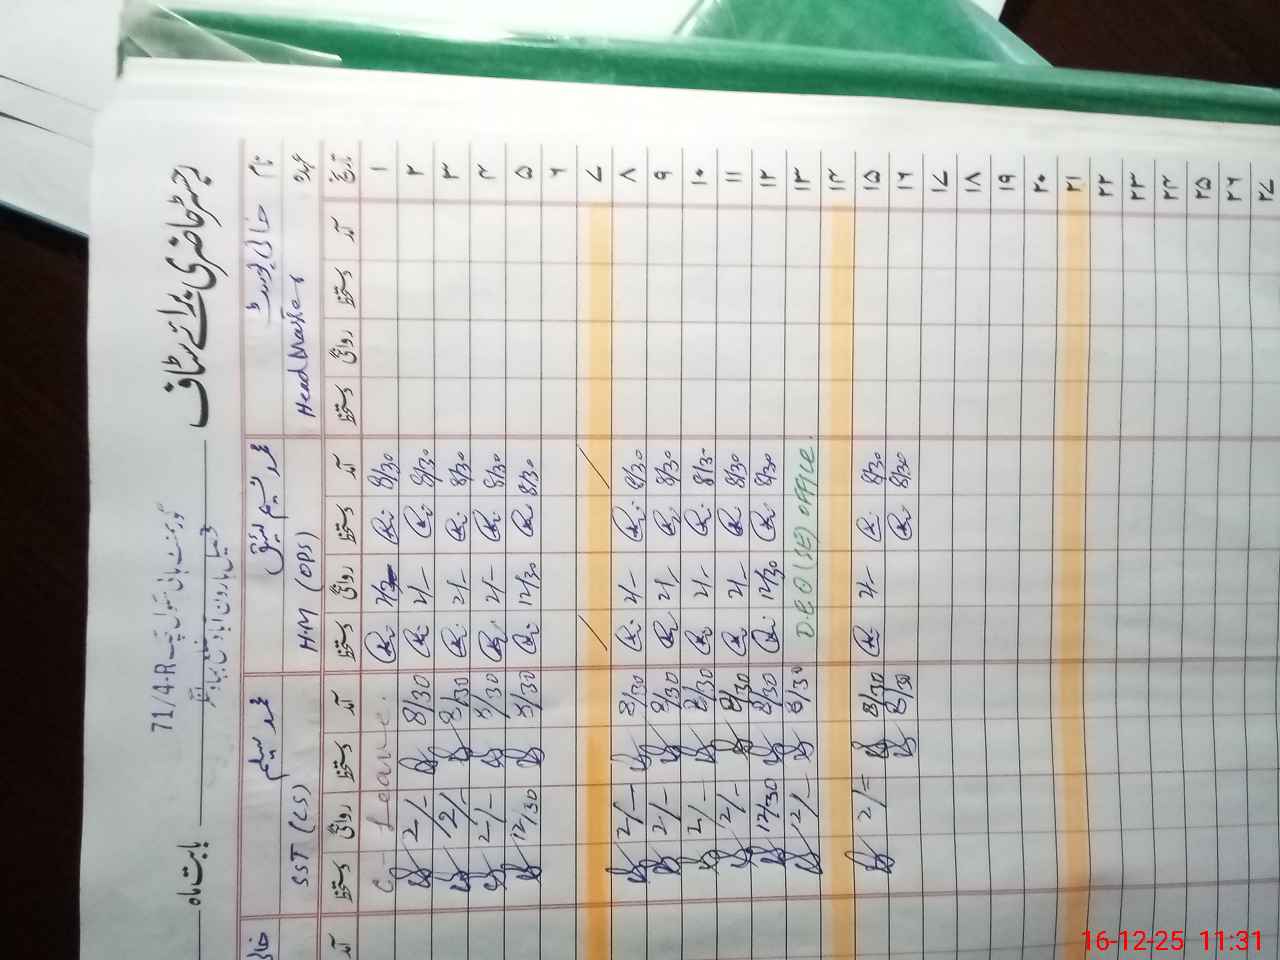 رجسٹر حاضری برائے سٹاف
گورنمنٹ ہائی سکول چک 71/4-R
تحصیل ہارون آباد ضلع بہاولنگر
بابت ماہ
نام خالی پوسٹ محمد نسیم محمد سلیم خالی
عہدہ Head Master HM (OPS) SST (CS)
تاریخ آمد دستخط روانگی دستخط آمد دستخط روانگی دستخط آمد دستخط روانگی دستخط آمد
۱ 8/30 C-Leave.
۲ 8/30 2/- 8/30 2/-
۳ 8/30 2/- 8/30 2/-
۴ 8/30 2/- 8/30 2/-
۵ 8/30 12/30 8/30 12/30
۶
۷
۸ 8/30 2/- 8/30 2/-
۹ 8/30 2/- 8/30 2/-
۱۰ 8/30 2/- 8/30 2/-
۱۱ 8/30 2/- 8/30 2/-
۱۲ 8/30 12/30 8/30 12/30
۱۳ D.E.O (SE) office. 8/30 12/-
۱۴
۱۵ 8/30 2/- 8/30 2/=
۱۶ 8/30 8/30
۱۷
۱۸
۱۹
۲۰
۲۱
۲۲
۲۳
۲۴
۲۵
۲۶
۲۷
16-12-25 11:31